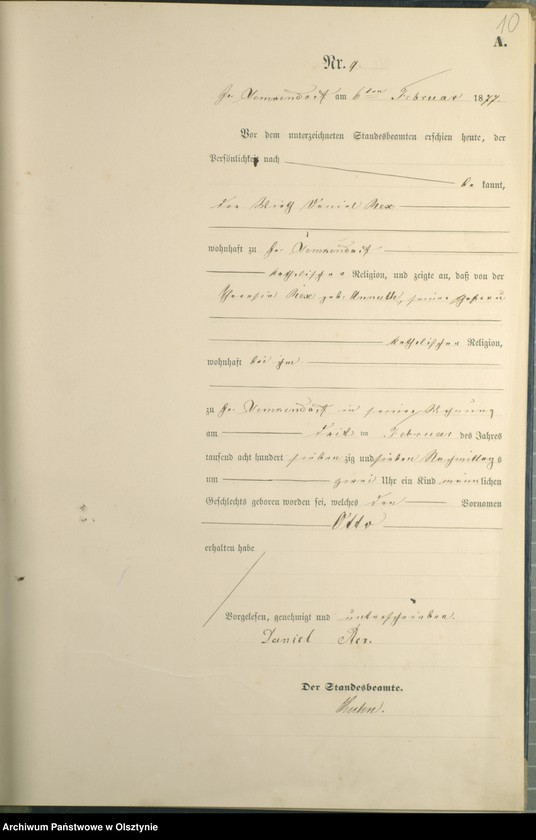 10
A.
Nr. 9.
Gr. am 6ten Februar 1877.
Vor dem unterzeichneten Standesbeamten erschien heute, der
Persönlichkeit nach
be kannt,
der Wirth Daniel Rex
wohnhaft zu Gr.
katholischer Religion, und zeigte an, daß von der
Theresia Rex geb. seiner Ehefrau
katholischer Religion,
wohnhaft bei ihm
zu Gr. in seiner Wohnung
am Februar des Jahres
tausend acht hundert sieben zig und sieben Nachmittags
um zwei Uhr ein Kind männlichen
Geschlechts geboren worden sei, welches den Vornamen
Otto
erhalten habe
Vorgelesen, genehmigt und unterschrieben.
Daniel Rex.
Der Standesbeamte.
Archiwum Państwowe w Olsztynie